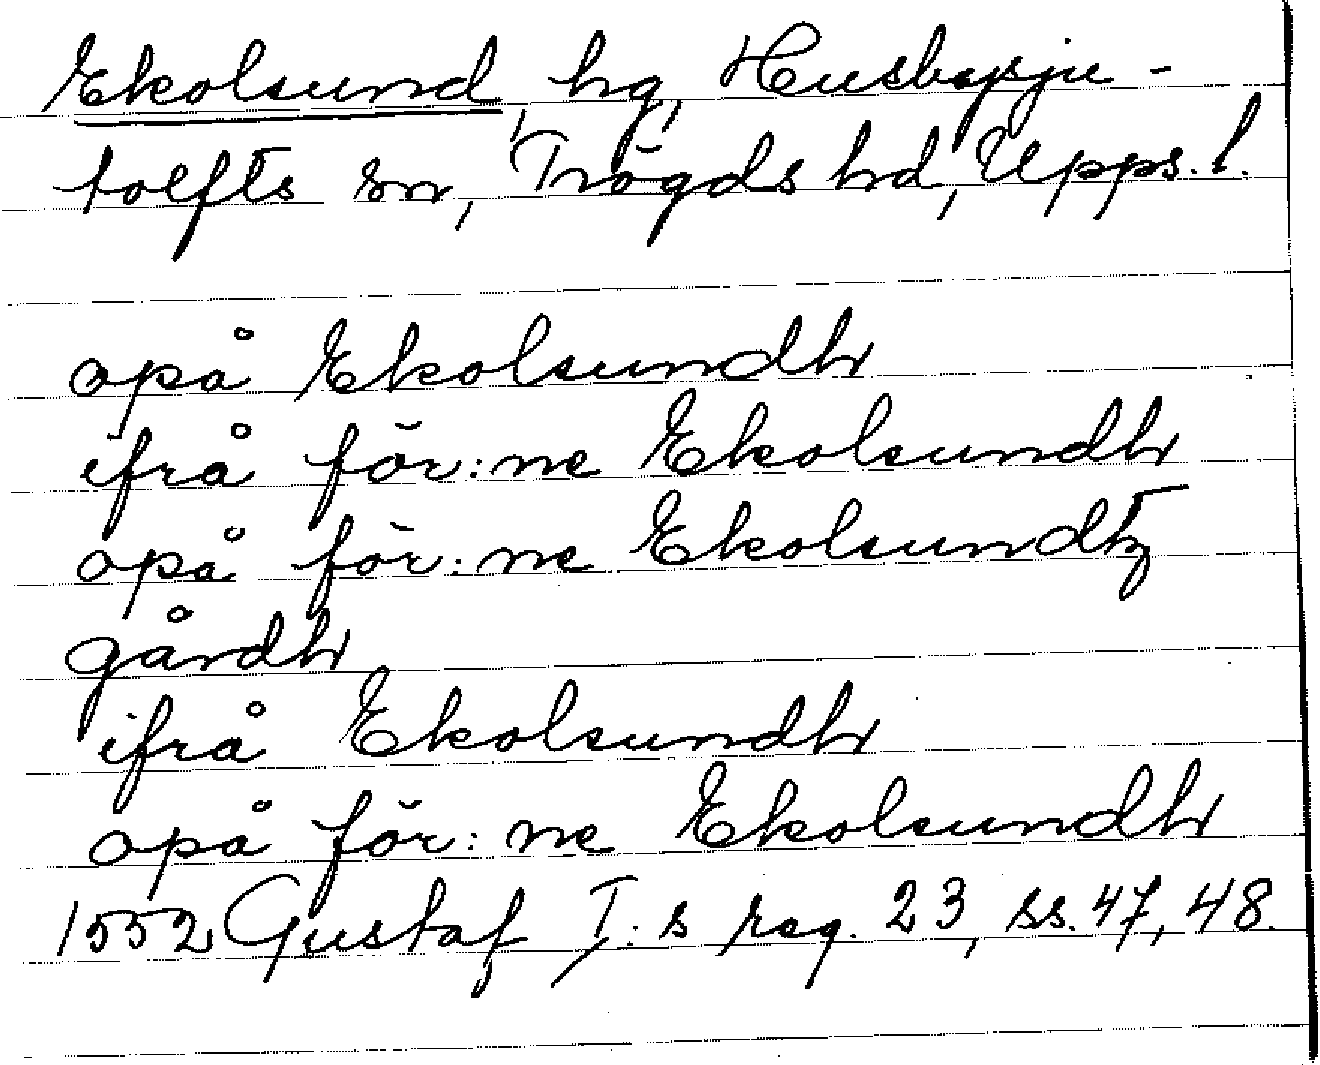 Ekolsund, hg, Husbysju-
tolfts sn, Trögds hd, Upps. l.
opå Ekolsundh
ifrå för:ne Ekolsundh
opå för:ne Ekolsundtz
gårdh
ifrå Ekolsundh
opå för:ne Ekolsundh
1552 Gustaf I:s reg. 23, ss. 47, 48.